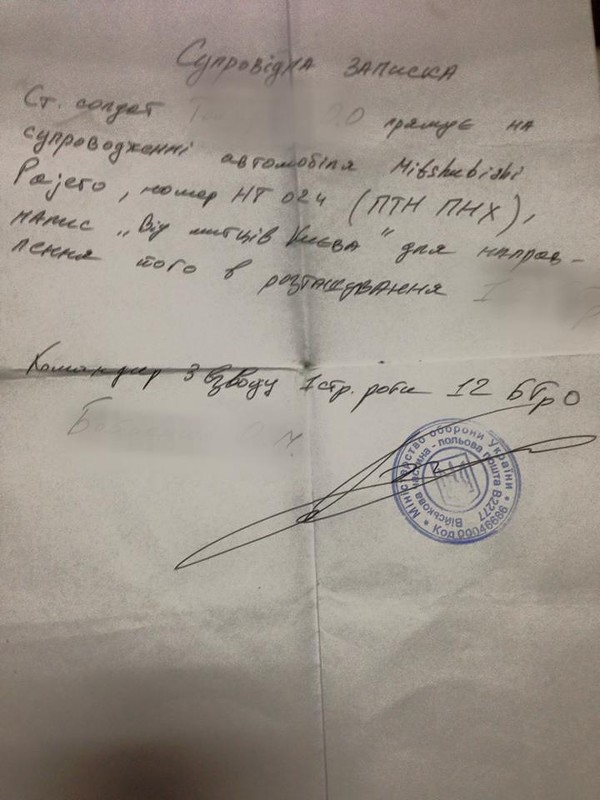 Супровідна записка
Ст. солдат прямує на
супроводженні автомобіля Mitshubishi
Pajeto, номер НТ 024 (ПТН ПНХ),
напис „Від митців Києва" для направ-
лення того в розташування
Командир 3 взводу 1 стр. роти 12 БТрО
Міністерство оборони України
Військова частина - польова пошта В2277
* Код 00049989 *